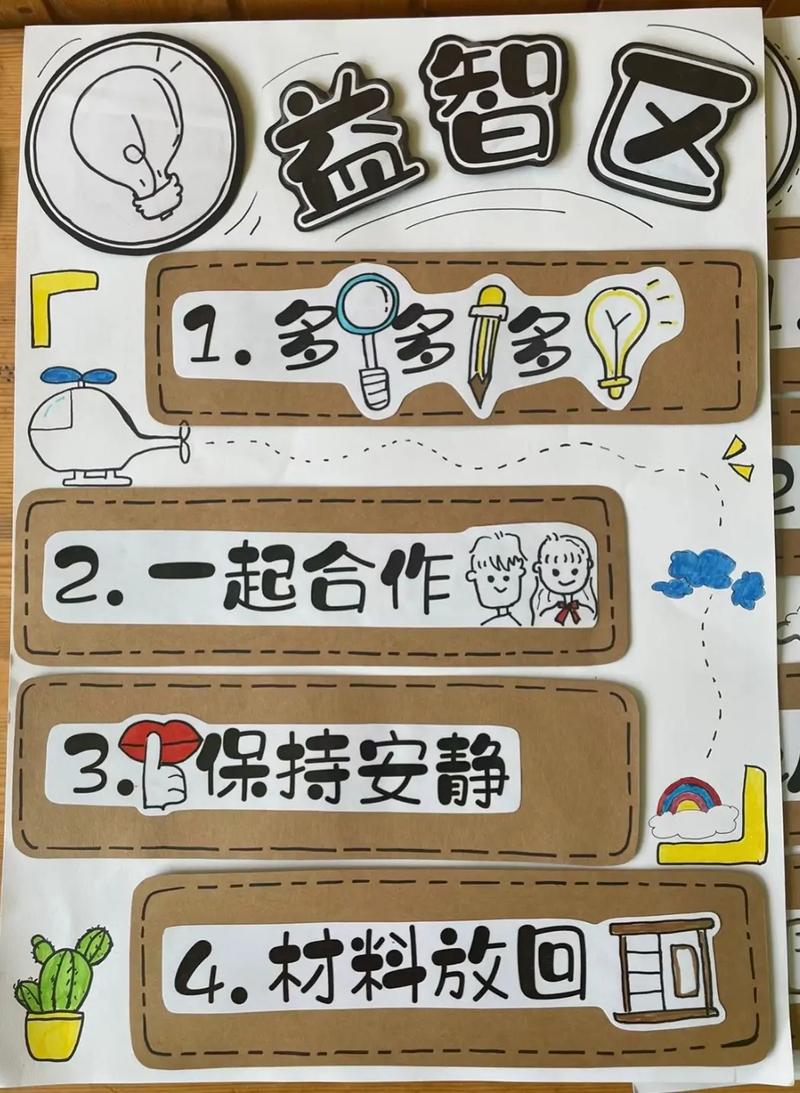 益智区
1.多多多
2.一起合作
3.保持安静
4.材料放回